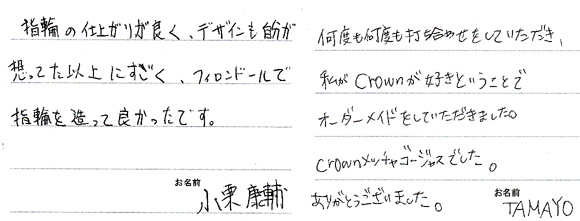 指輪の仕上がりが良く、デザインも自分が
想ってた以上にすごく、フィロンドールで
指輪を造って良かったです。
お名前 小栗康輔
何度も何度も打ち合わせをしていただき、
私がCrownが好きということで
オーダーメイドをしていただきました。
Crownメッチャゴージャスでした。
ありがとうございました。
お名前 TAMAYO